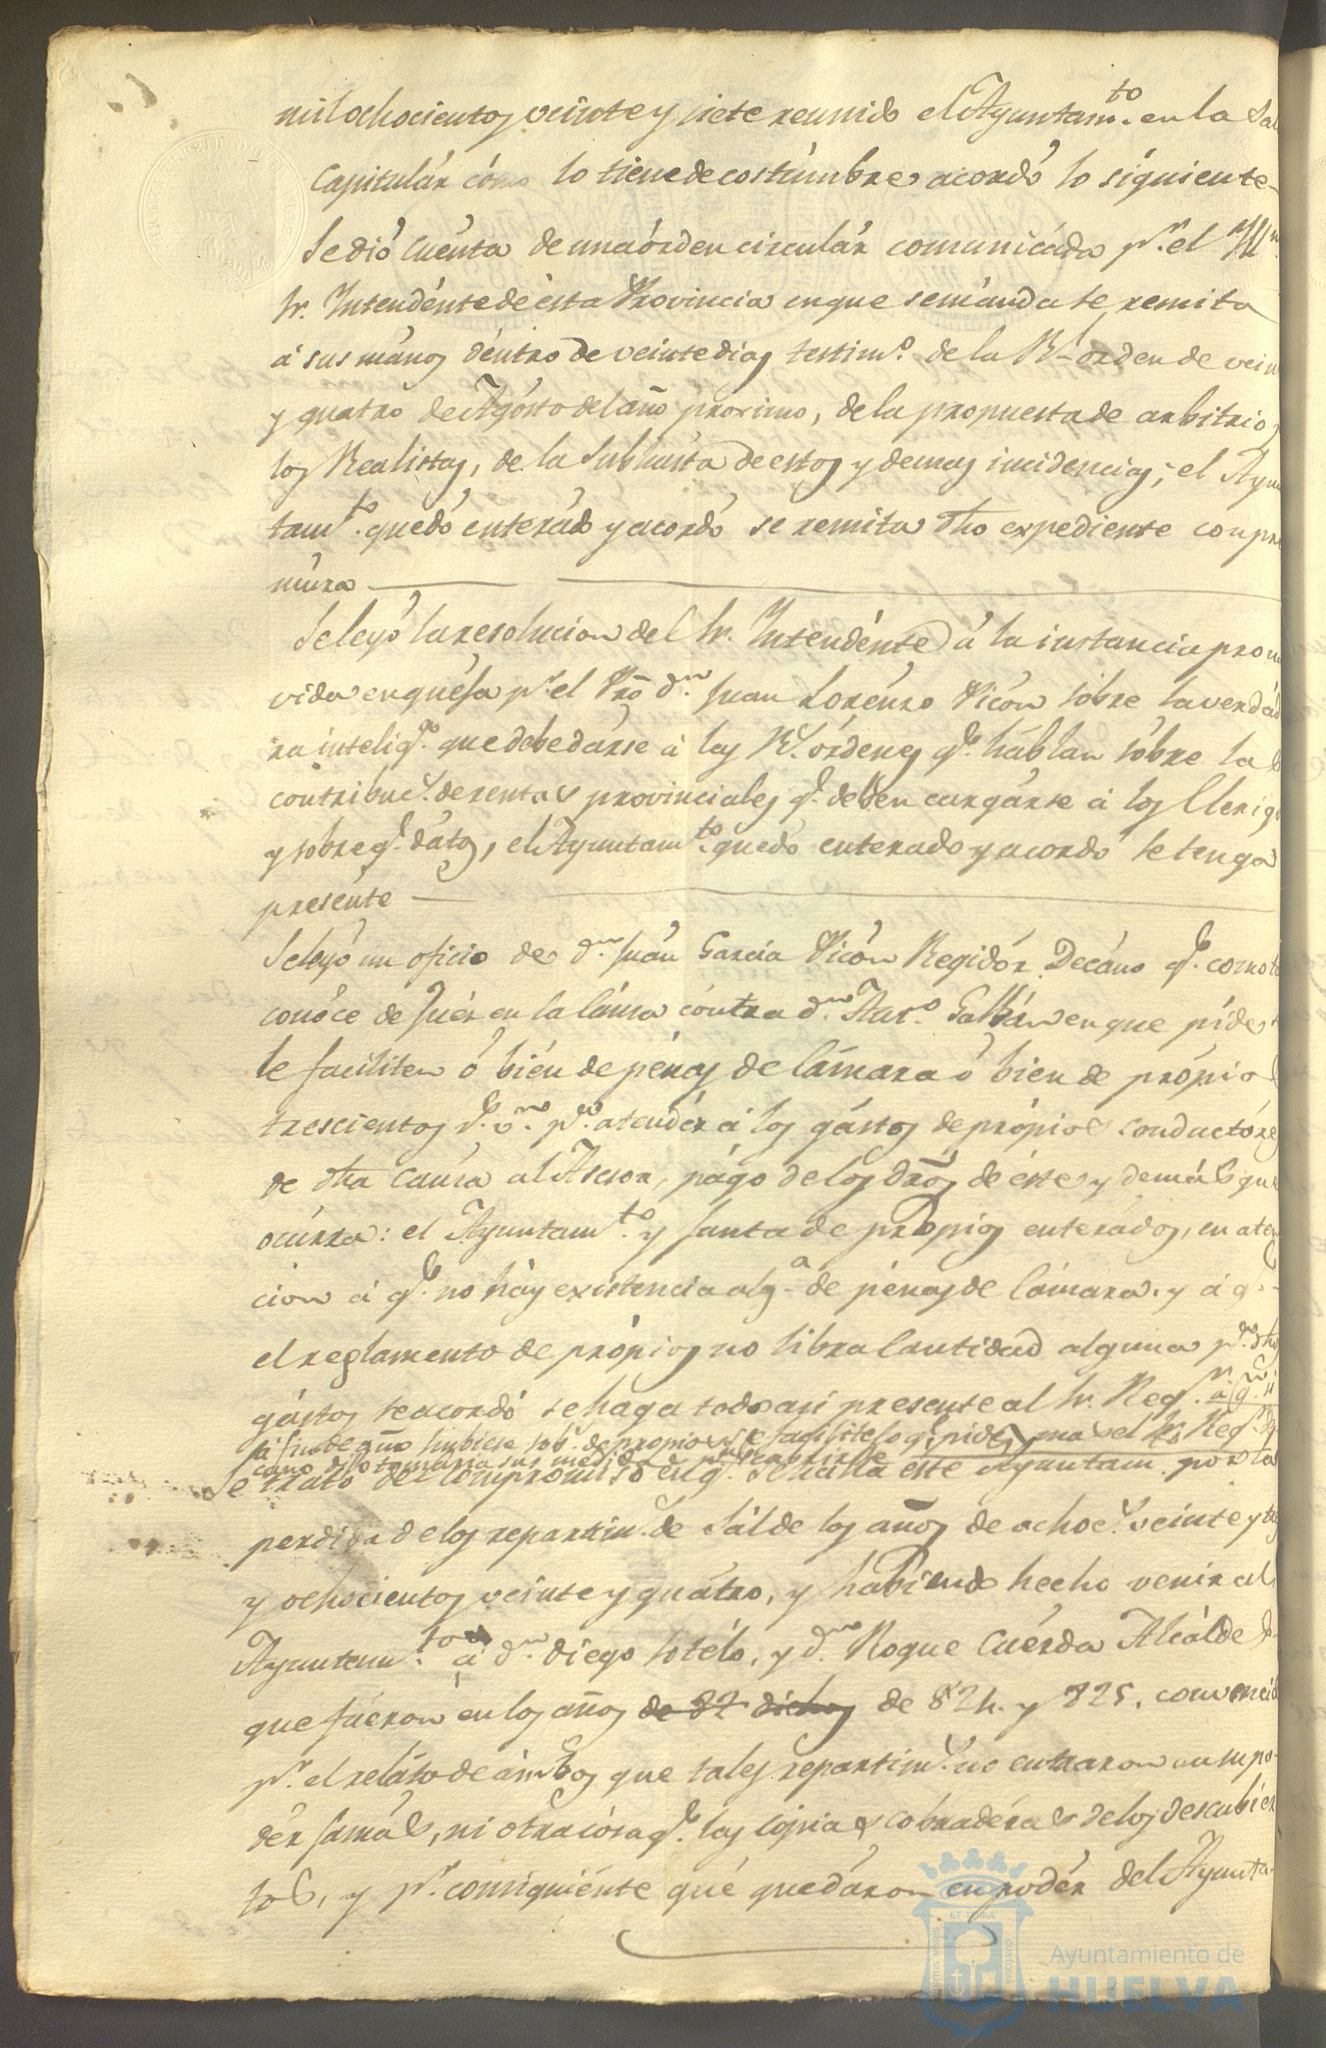 mil ochocientos veinte y siete reunido el Ayuntam.to en la Sal
Capitulár cómo lo tiene de costúmbre acordó lo siguiente
Se dió cuenta de una órden circulár comunicáda p.r el
Sr. Intendénte de ésta Provincia en que se mánda se remita
á sus mános déntro de veinte dias testim.o de la R.l orden de vein
y quatro de Agósto del año proximo, de la propuesta de arbitrios
los Realistas, de la Subhásta de estos y demas incidencias; el Ayun
tam.to quedó enterádo y acordó se remita dho expediente con pre
múra
Se leyó la resolucion del Sr. Intendénte á la instancia promo
vida en quéja p.r el Pro d.n Juan Lorénzo Picón sóbre la verdad
ra intelig.a que debe dárse á las R.s órdenes q.e háblan sóbre la
contribuc.n de rentas provinciales q.e deben cargárse á los Clerigo
y sobre q.e dátos, el Ayuntam.to quedó enterado y acordó se tenga
presénte
Se leyó un oficio de d.n Juán García Picón Regidór Decáno q.e como
conóce de Juéz en la cáusa cóntra d.n en que píde
le faciliten ó bién de pénas de Cámara ó bien de própios
trescientos r.s v.n p.a atendér á los gástos de própios conductóres
de dha Cáusa al Asesor, págo de los dros de éste y demás que
ocúrra: el Ayuntam.to y Junta de propios enterádos, en aten
cion á q.e no háy existencia alg.a de pénas de Cámara, y á q.e
el reglamento de própios no libra Cantidad alguna p.a dhos
gástos se acordó se haga todo asi presente al Sr. Reg.r
si hubiese sob.e de propios se facilite lo q.e pide, mas el Sr. Reg.r De
cano dijo tomaria sus medidas p.a
Se trató del compromiso en q.e se halla este Ayuntam.to por la
perdida de los repartim.s de Sál de los años de ochoc.s veinte y tres
y ochocientos veinte y quátro, y habiendo hecho venir al
Ayuntam.to á d.n Diego Sotélo, y d.n Roque Cuérda Alcálde
que fuéron en los años de 82 dichos de 824. y 825, convencid
p.r el reláto de ámbos que tales repartim.s no entraron en su po-
dér jamás, ni otra cósa q.e las cópias cobradéras de los descubiér
tos, y p.r consiguiénte qué quedáron en podér del Ayunta-
Ayuntamiento de
HUELVA